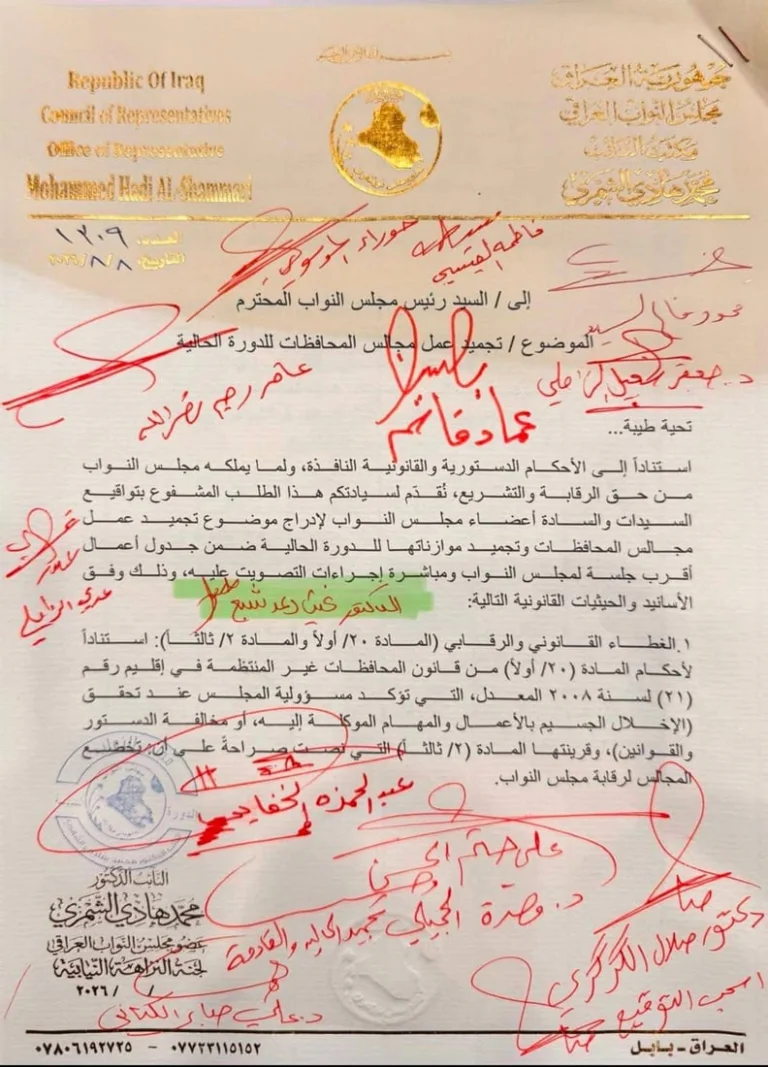 Republic Of Iraq
Council of Representatives
Office of Representative
Mohammed Hadi AL-Shammari
جمهورية العراق
مجلس النواب العراقي
مكتب النائب
محمد هادي الشمري
العدد: ١٣٠٩
التاريخ: ٢٠٢٦/٨/٨
حوراء الموسوي
فاطمة العيسى
إلى / السيد رئيس مجلس النواب المحترم
الموضوع / تجميد عمل مجالس المحافظات للدورة الحالية
عامر رحيم نصرالله
باسم
عماد قاسم
تحية طيبة...
استناداً إلى الأحكام الدستورية والقانونية النافذة، ولما يملكه مجلس النواب
من حق الرقابة والتشريع، نُقدّم لسيادتكم هذا الطلب المشفوع بتواقيع
السيدات والسادة أعضاء مجلس النواب لإدراج موضوع تجميد عمل
مجالس المحافظات وتجميد موازناتها للدورة الحالية ضمن جدول أعمال
أقرب جلسة لمجلس النواب ومباشرة إجراءات التصويت عليه، وذلك وفق
الأسانيد والحيثيات القانونية التالية:
عدي الزاملي
الدكتور غيث رعد شبع
١. الغطاء القانوني والرقابي (المادة ٢٠/ أولاً والمادة ٢/ ثالثاً): استناداً
لأحكام المادة (٢٠/ أولاً) من قانون المحافظات غير المنتظمة في إقليم رقم
(٢١) لسنة ٢٠٠٨ المعدل، التي تؤكد مسؤولية المجلس عند تحقق
(الإخلال الجسيم بالأعمال والمهام الموكلة إليه، أو مخالفة الدستور
والقوانين)، وقرينتها المادة (٢/ ثالثاً) التي نصت صراحةً على أن تخضع
المجالس لرقابة مجلس النواب.
عبد الحمزه الخفاجي
د. علي صابر الكناني
دكتور صلال الكركري
اسحب التوقيع
النائب الدكتور
محمد هادي الشمري
عضو مجلس النواب العراقي
لجنة النزاهة النيابية
/ / ٢٠٢٦
٠٧٨٠٦١٩٢٧٣٥ - ٠٧٧٢٣١١٥١٥٢
العراق - بابل